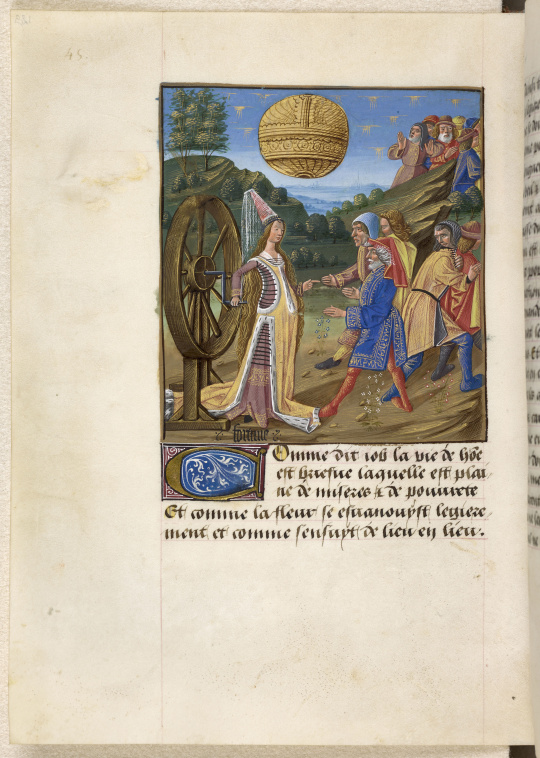 45.
fortune
Comme dit iob la vie de hõe
est briefue laquelle est plai
ne de miseres & de pouurete
Et comme la fleur se esuanouyst legiere
ment et comme sensuyt de lieu en lieu.